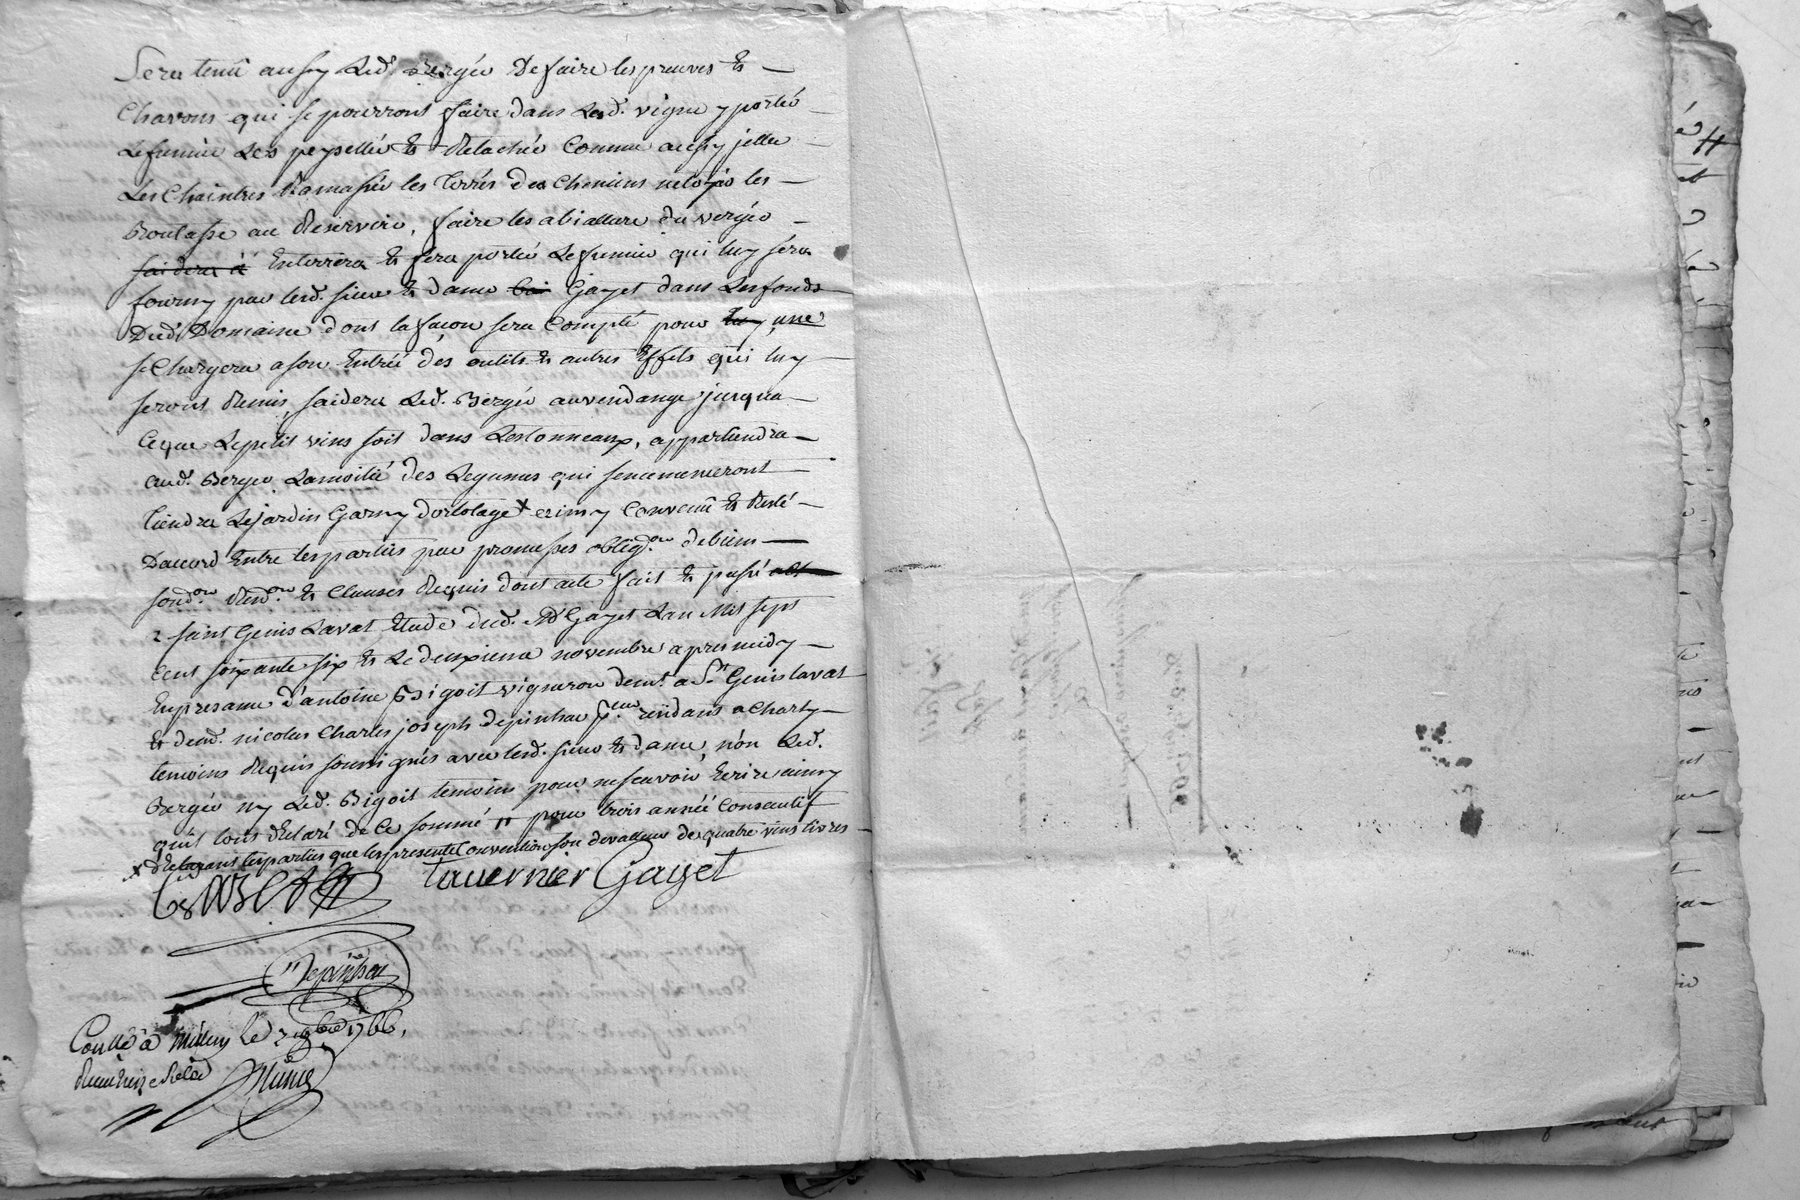 Sera tenû aussy Led. Bergéo De faire les preuves &
Chavons qui se pourront faire dans Lad. vigne y porteo
Le fumieo Les peyselléo & Relacheo Comme aussy jetteo
Les Chaintres Ramasseo les terrés des Chemins netoyéo les
Boutasse au Reservoire, faire les abiallure du vergéo
Enterrera & fera portéo Le fumieo qui luy sera
fourny pao lesd. sieur & dame Gayet dans Les fonds
Dud. Domaine dont la façon sera Compté pour une
se Chargera a son Entréé des outils & autres Effets qui luy
seront Remis, saidera Led. Bergéo auvendange jusqua
Ceque Lepetit vins soit dans Lestonneaux, appartiendra
aud. Bergeo Lamoitié des Legumes qui sencemenceront
tiendra Lejardin Garny dortolage x ainsy Convenû & Resté
Daccord Entre lesparties pao promesses oblig.on debiens
Renon.on & Clauses Requis dont acte fait & passé
a saint Genis Laval Etude dud. Me Gayet Lan Mil sept
Cent soixante six & Le deuxieme novembre apres midy
Enpresance d'antoine Bigoit vigneron dem.t a St Genis laval
& de nicolas Charles joseph depinhac residant a Charly
temoins Requis soussignés avec lesd. sieur & dame, nón Led.
Bergéo ny Led. Bigoit temoins pour nescavoio Ecrire ainsy
quils lont declaré de Ce sommé // pour trois année Consecutif
x Declarans lesparties que lespresente Convention son devalleur de quatre vins livres
tavernier Gayet
Depinhac
Conllé â Millery le 2 9bre 1766,